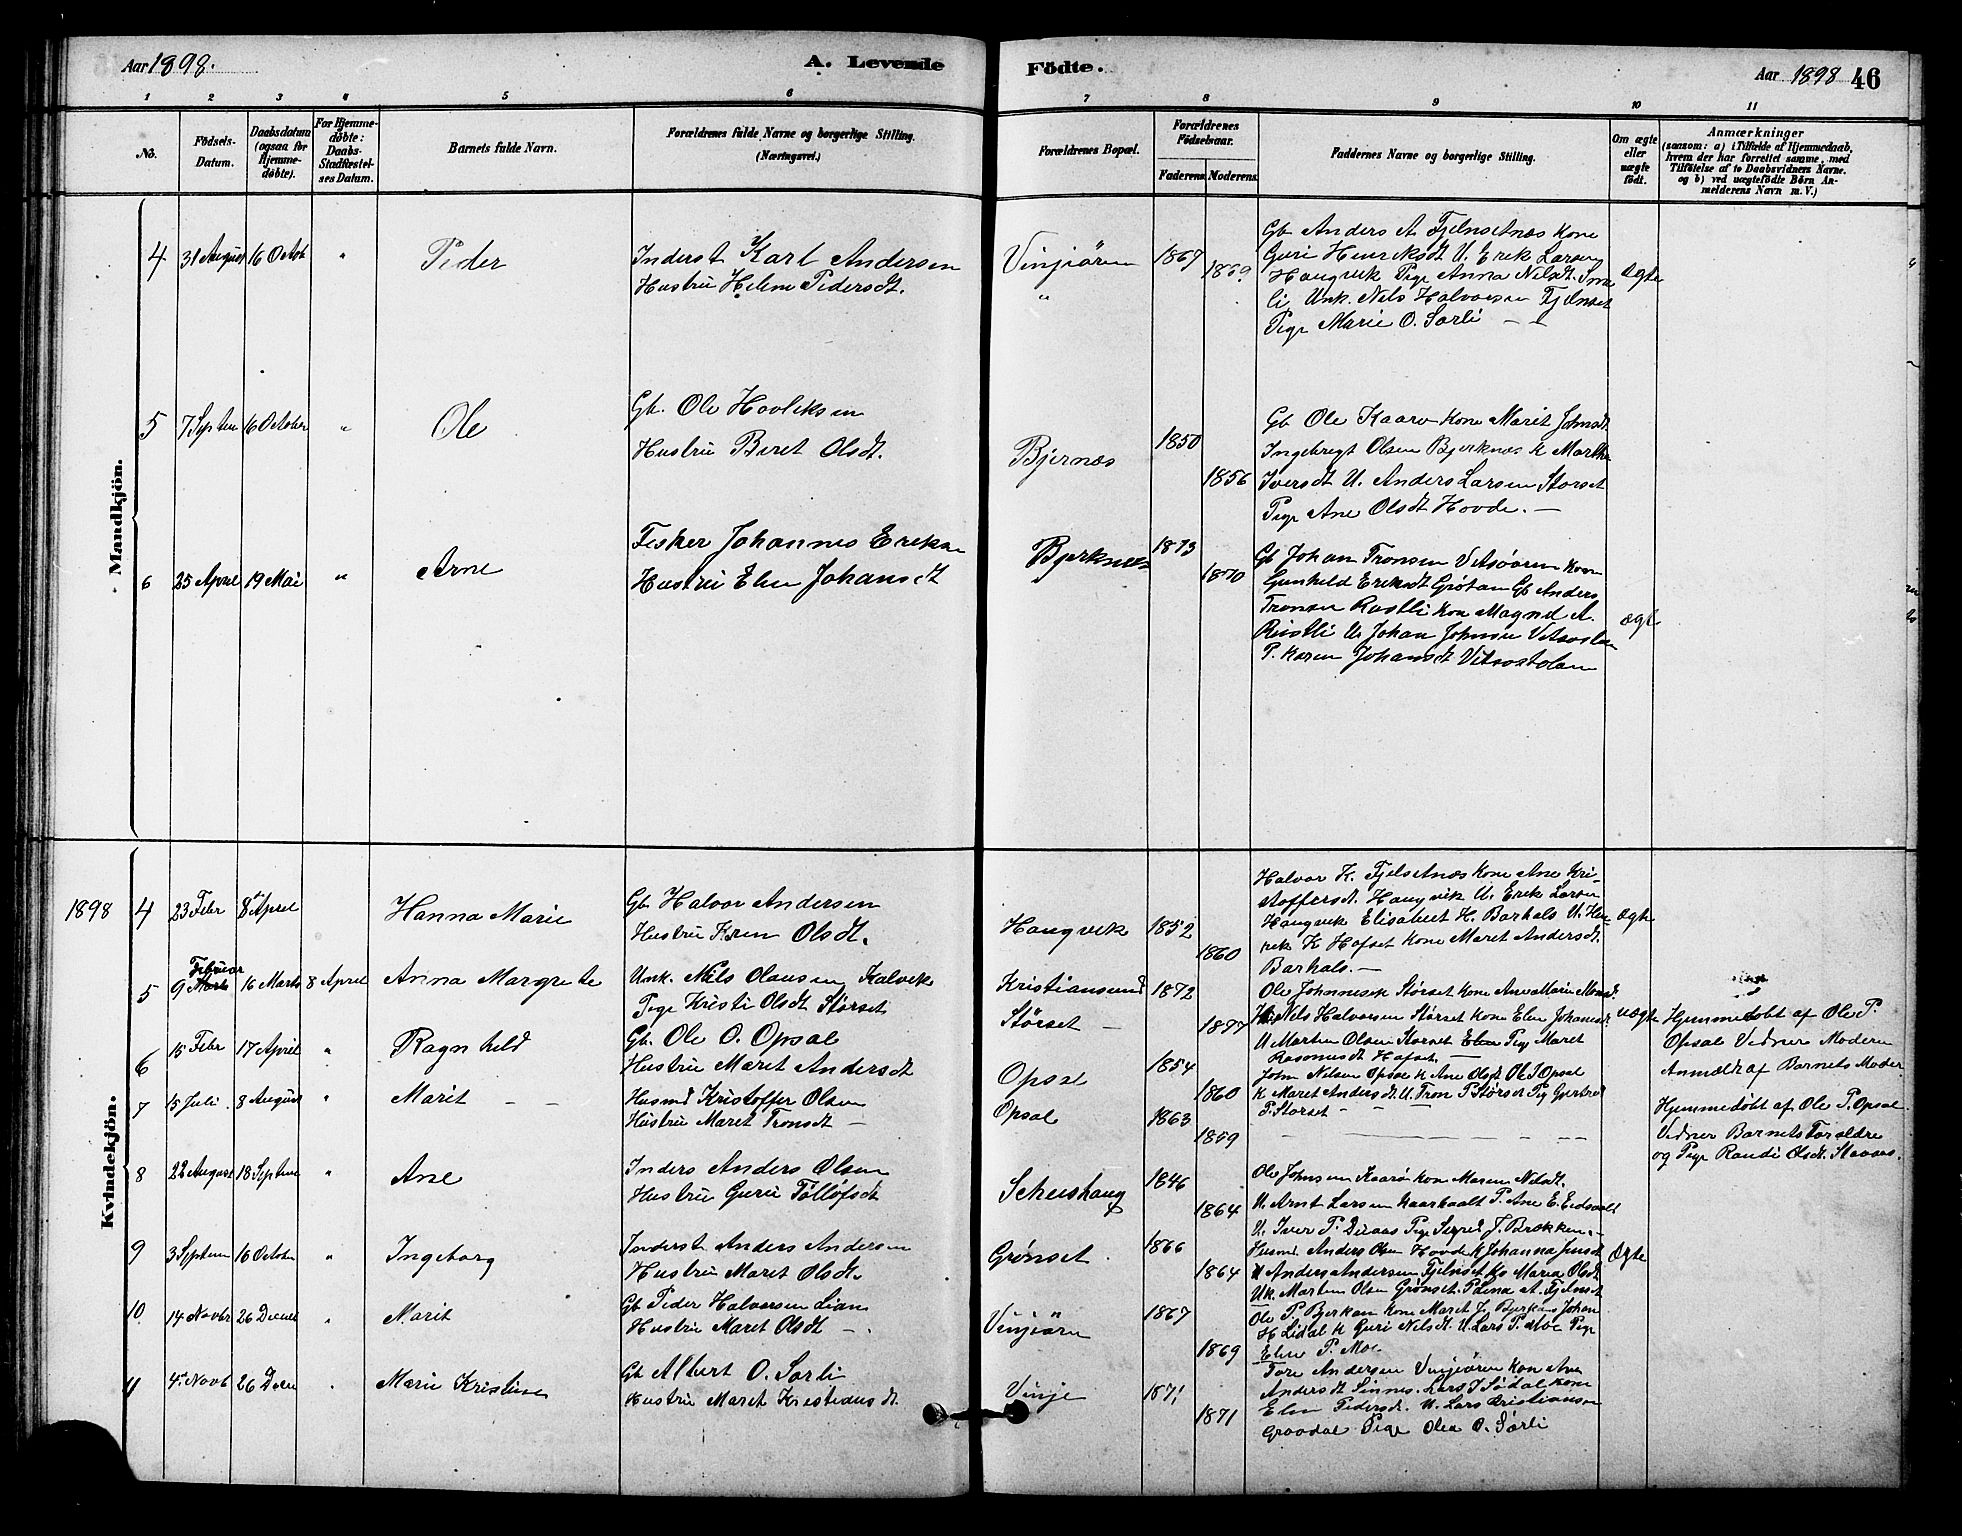 Aar 1898.
A. Levende
Födte.
Aar 1898
46
1 2 3 4 5 6 7 8 9 10 11
No.
Födsels-
Datum.
Daabsdatum
(ogsaa for
Hjemme-
döbte).
For Hjemme-
döbte:
Daabs-
Stadfæstel-
ses Datum.
Barnets fulde Navn.
Forældrenes fulde Navne og borgerlige Stilling.
(Næringsvei.)
Forældrenes Bopæl.
Forældrenes
Födselsaar.
Faderens. Moderens.
Faddernes Navne og borgerlige Stilling.
Om ægte
eller
uægte
födt.
Anmærkninger
(saasom: a) i Tilfælde af Hjemmedaab,
hvem der har forrettet samme, med
Tilföielse af to Daabsvidners Navne.
og b) ved uægtefödte Börn An-
melderens Navn m. V.)
Mandkjön.
4 31 August 16 Octob " Peder
Inderst Karl Andersen
Hustru Helene Pedersdt.
Vinjeören
"
1867
1869
Gb Anders A Fjelnsetnæs Kone
Guri Henriksdt U. Erik Larsen
Haugvik Pige Anna Nilsdt.
li Unk. Nels Halvorsen Fjelnset
Pige Marie O. Sorli —
Ægte
5 7 Septem 16 October " Ole
Gb. Ole Hovleksen
Hustru Beret Olsdt.
Bjernæs
1850
1856
Gb Ole Kaarø Kone Marit Johnsdt
Ingebregt Olsen Bjerknæs K Marthe
Iversdt U. Anders Larsen Storset
Pige Ane Olsdt Hovde. —
6 25 April 19 Mai " Arne
Fisker Johannes Eriksen
Hustru Elen Johansdt
Bjerknes
1873
1870
Gb Johan Tronsen Vitsøören Kone
Gunhild Eriksdt Grøtan Gb Anders
Tronsen Rustli Kone Magnil A.
Rustli U. Johan Johnsen
P. Karen Johansdt Vitsostolan
Ægte
1898
Kvindekjön.
4 23 Febr 8 April Hanna Marie
Gb. Halvor Andersen
Hustru Karen Olsdt.
Haugvik
1852
1860
Halvor K. Fjelsetnæs Kone Ane Kri-
stoffersdt. Haugvik U. Erik Larsen
Haugvik Elisabet H. Barhals U. Hen-
rik K Hafset Kone Maret Andersdt.
Barhals. —
Ægte
5 9 Februar 16 Marts 8 April Anna Margrethe
Unk. Nils Olausen Kalvik
Pige Kristi Olsdt Störset
Kristiansund
Störset —
1872
1877
Ole Johnnesen Störset Kone Ane Marie Monsd.
Nils Halvorsen Störset Kone Elen Johansd.
U Marten Olsen Storset Pige Maret
Rasmusdt Hafset. —
uægte
Hjemmedøbt af Ole P.
Opsal Vidner Moderen
Anmeldt af Barnets Moder
6 15 Febr 17 April " Ragnhild
Gb. Ole O. Opsal
Hustru Maret Andersdt
Opsal
1854
1860
John Nilsen Opsal K Ane Olsdt Ole J Opsal
K Maret Andersdt. U. Tron P Störset Pig Gjertrud
P. Storset — —
7 15 Juli. 8 August " Marit — —
Husmd Kristoffer Olsen
Hustru Maret Tronsdt —
Opsal
1863
1859
Hjemmedøbt af Ole P. Opsal
Vidner Barnets Foraldre
og Pige Randi Olsdt. Stavaas.
8 22 August 18 Septem " Ane
Inders Anders Olsen
Hustru Guru Tølløfsdt
Scheishaug
1846
1864
Ole Johnsen Kaarø Kone Maren Nilsdt.
U. Arnt Larsen P. Ane E. Eidsvaalt
U. Iver P. Pige Sigrid J. Brekken. —
9 3 Septem 16 October " Ingeborg
Inderst Anders Andersen
Hustru Maret Olsdt.
Grønset.
1866
1864
Husmd. Anders Olsen Hovde K Johanna Jensdt
U Anders Andersen Fjelnset Ko Maria Olsdt
Uk. Marten Olsen Grønset. P Lena A. Fjelnset
Ægte
10 14 Novbr 26 Decem " Marit
Gb Peder Halvorsen Lian
Hustru Maret Olsdt —.
Vinjeörn
1867
1869
Ole P Bjerkan Kone Maret J. Bjerkan Johan
H Lidal K Guri Nilsdt. U. Lars P. Moe Pige
Elen P. Moe
11 4 Novb 26 Decm " Marie Kristine
Gb Albert O. Sorli
Hustru Maret Kristensdt.
Vinje
1871
1871
Tore Andersen Vinjeören Kone Ane
Andersdt Sinnes. Lars J Sødal Kone
Elen Pedersdt. U. Lars Kristiansen
Graadal Pige Olea O. Sorli